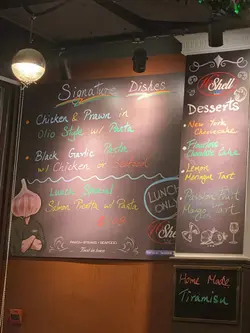 Signature Dishes
• Chicken & Prawn in
Olio Style w/ Pasta
• Black Garlic Pasta
w/ Chicken or Salmon
Lunch Special
Salmon Piccata w/ Pasta
LUNCH
ONLY!
Shell
Desserts
• New York
Cheesecake
Chocolate Cake
• Lemon
Meringue Tart
• Passion Fruit
Mango Tart
Shell
Home Made
Tiramisu